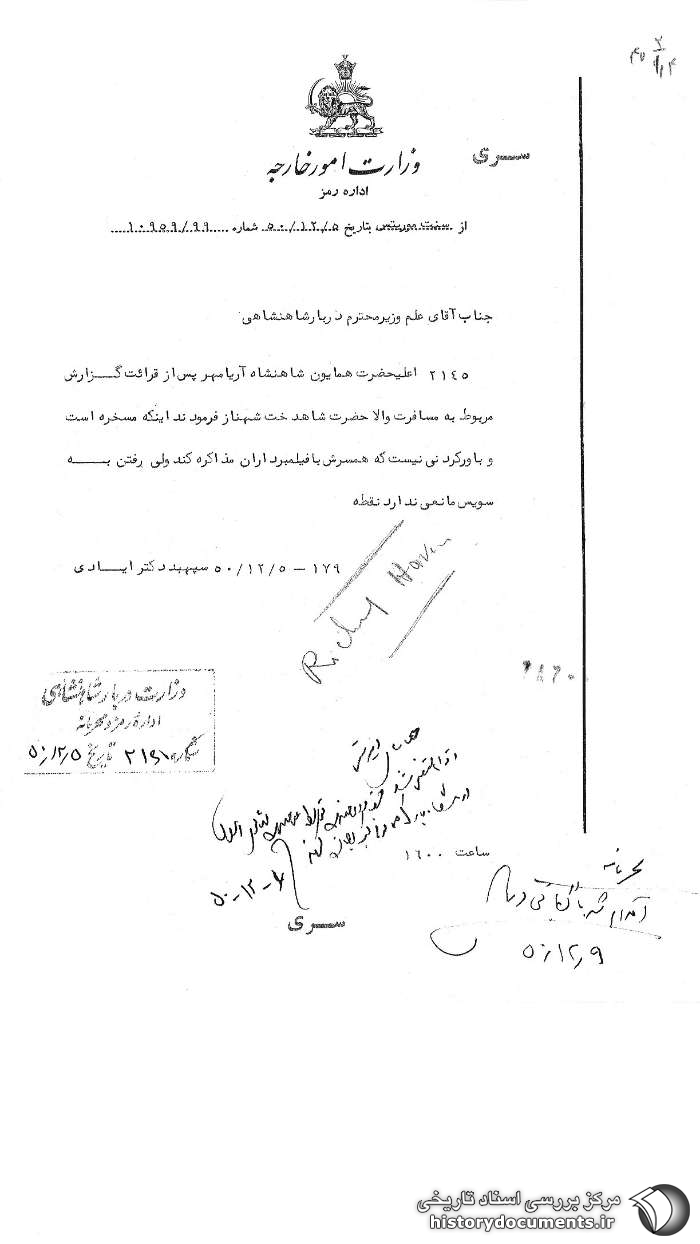 سری
وزارت امور خارجه
اداره رمز
از سنت موریتس بتاریخ ۵۰/۱۲/۵ شماره ۱۰۹۵۹/۹۹
جناب آقای علم وزیر محترم دربار شاهنشاهی
۲۱۴۵ اعلیحضرت همایون شاهنشاه آریامهر پس از قرائت گزارش
مربوط به مسافرت والا حضرت شاهدخت شهناز فرمودند اینکه مسخره است
و باور کردنی نیست که همسرش با فیلمبرداران مذاکره کند ولی رفتن به
سویس مانعی ندارد نقطه
۱۷۹ – ۵۰/۱۲/۵ سپهبد دکتر ایادی
وزارت دربار شاهنشاهی
اداره رمز و محرمانه
شماره تاریخ ۵۰/۱۲/۵
ساعت ۱۶۰۰
۵۰-۱۲-۶
سری
محرمانه
۵۰/۱۲/۹
مرکز بررسی اسناد تاریخی
historydocuments.ir